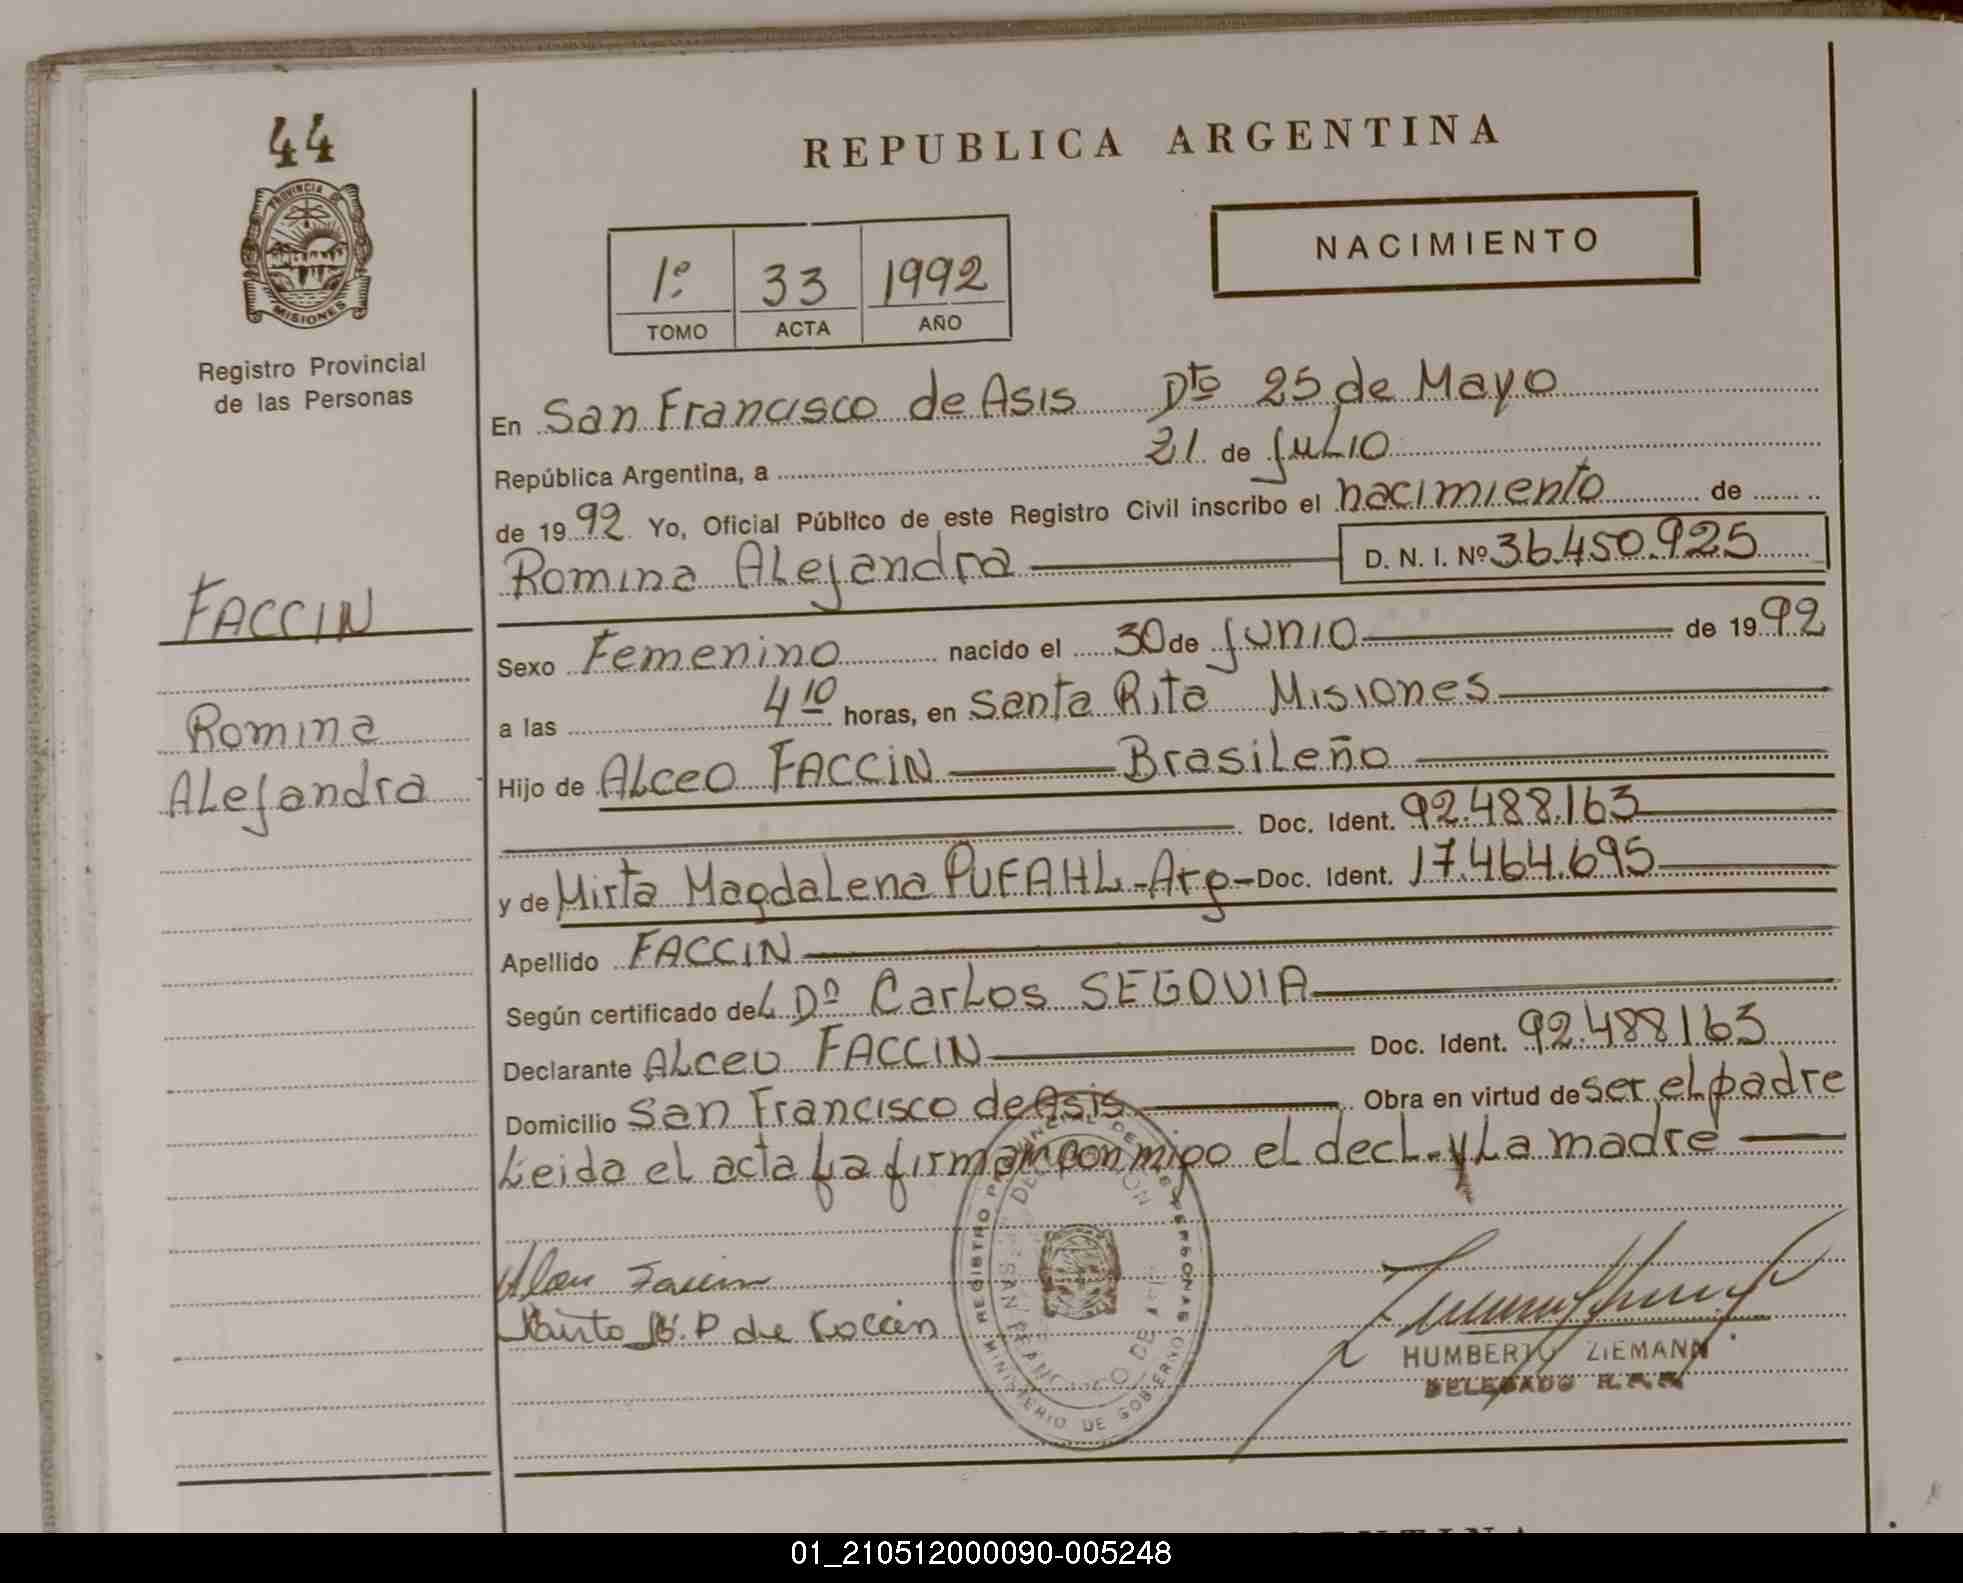 44
PROVINCIA DE
MISIONES
Registro Provincial
de las Personas
FACCIN
Romina
Alejandra
REPUBLICA ARGENTINA
NACIMIENTO
1º 33 1992
TOMO ACTA AÑO
En San Francisco de Asis Dto 25 de Mayo
República Argentina, a 21 de Julio
de 1992 Yo, Oficial Público de este Registro Civil inscribo el nacimiento de
Romina Alejandra D. N. I. Nº 36.450.925
Sexo Femenino nacido el 30 de Junio de 1992
a las 4 10 horas, en Santa Rita Misiones
Hijo de Alceo FACCIN Brasileño
Doc. Ident. 92.488.163
y de Mirta Magdalena PUFAHL - Arg - Doc. Ident. 17.464.695
Apellido FACCIN
Según certificado del Dº Carlos SEGOVIA
Declarante Alceo FACCIN Doc. Ident. 92.488163
Domicilio San Francisco de Asis Obra en virtud de ser el padre
Leida el acta La firman con migo el decl. y La madre
REGISTRO PROVINCIAL DE LAS PERSONAS
DELEGACION
SAN FRANCISCO DE
MINISTERIO DE GOBIERNO
HUMBERTO ZIEMANN
DELEGADO
01_210512000090-005248